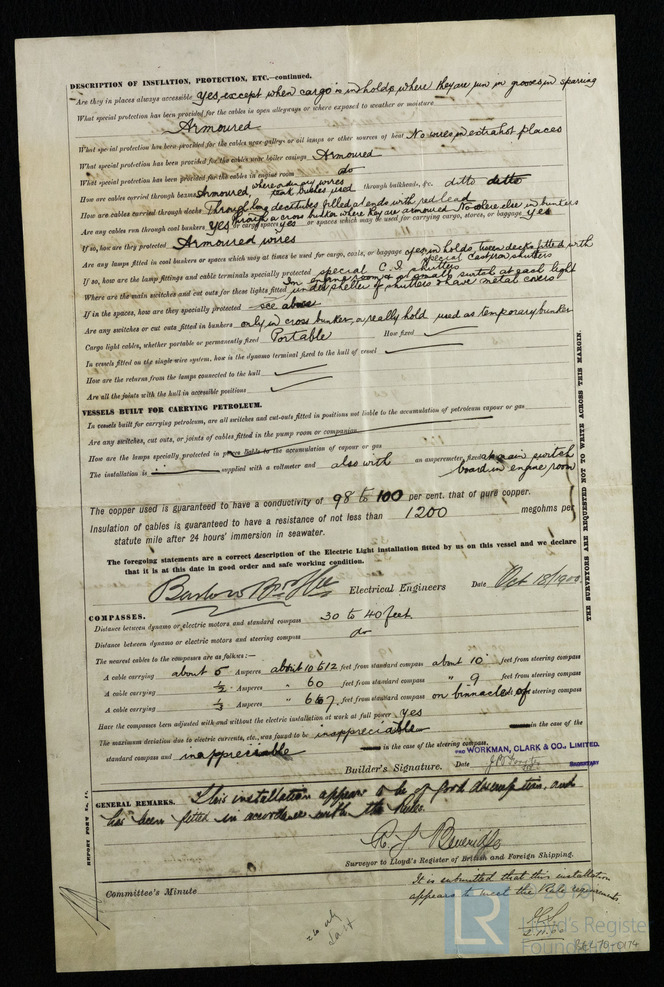 DESCRIPTION OF INSULATION, PROTECTION, ETC.—continued.
Are they in places always accessible Yes, except when cargo is in holds where they are run in grooves in sparring
What special protection has been provided for the cables in open alleyways or where exposed to weather or moisture
Armoured
What special protection has been provided for the cables near galleys or oil lamps or other sources of heat No wires in extra hot places
What special protection has been provided for the cables near boiler casings Armoured
What special protection has been provided for the cables in engine room do
How are cables carried through beams Armoured, where ordinary wires bushes used through bulkheads, &c. ditto ditto
How are cables carried through decks Through long deck tubes filled at ends with red lead
Are any cables run through coal bunkers Yes through a cross bunker where they are armoured No where else in bunkers or cargo spaces yes or spaces which may be used for carrying cargo, stores, or baggage yes
If so, how are they protected Armoured wires
Are any lamps fitted in coal bunkers or spaces which may at times be used for cargo, coals, or baggage open in holds, tween decks fitted with special cast iron shutters
If so, how are the lamp fittings and cable terminals specially protected special C.I. shutters
Where are the main switches and cut outs for these lights fitted In engine room & at gash light under shelter of shutters & have metal covers
If in the spaces, how are they specially protected see above
Are any switches or cut outs fitted in bunkers only in cross bunker, a really hold used as temporary bunker
Cargo light cables, whether portable or permanently fixed Portable How fixed
In vessels fitted on the single wire system, how is the dynamo terminal fixed to the hull of vessel
How are the returns from the lamps connected to the hull
Are all the joints with the hull in accessible positions
VESSELS BUILT FOR CARRYING PETROLEUM.
In vessels built for carrying petroleum, are all switches and cut-outs fitted in positions not liable to the accumulation of petroleum vapour or gas
Are any switches, cut outs, or joints of cables fitted in the pump room or companion
How are the lamps specially protected in places liable to the accumulation of vapour or gas
The installation is supplied with a voltmeter and also with an amperemeter, fixed on main switch board in engine room
The copper used is guaranteed to have a conductivity of 98 to 100 per cent. that of pure copper.
Insulation of cables is guaranteed to have a resistance of not less than 1200 megohms per
statute mile after 24 hours' immersion in seawater.
The foregoing statements are a correct description of the Electric Light installation fitted by us on this vessel and we declare
that it is at this date in good order and safe working condition.
Electrical Engineers Date Oct 18/1900
COMPASSES.
Distance between dynamo or electric motors and standard compass 30 to 40 feet
Distance between dynamo or electric motors and steering compass do
The nearest cables to the compasses are as follows:—
A cable carrying about 5 Amperes about 10 to 12 feet from standard compass about 10 feet from steering compass
A cable carrying ½ Amperes " 60 feet from standard compass " 9 feet from steering compass
A cable carrying ⅓ Amperes " 6 to 7 feet from standard compass on binnacle of steering compass
Have the compasses been adjusted with and without the electric installation at work at full power yes
The maximum deviation due to electric currents, etc., was found to be inappreciable in the case of the
standard compass and inappreciable in the case of the steering compass.
PRO WORKMAN, CLARK & CO., LIMITED.
Builder's Signature. Date
SECRETARY
GENERAL REMARKS. This installation appears to be of good description, and
has been fitted in accordance with the Rules.
R. J. Beveridge
Surveyor to Lloyd's Register of British and Foreign Shipping.
Committee's Minute
It is submitted that this installation
appears to meet the Rule requirements.
THE SURVEYORS ARE REQUESTED NOT TO WRITE ACROSS THIS MARGIN.
LR
Lloyd's Register
Foundation